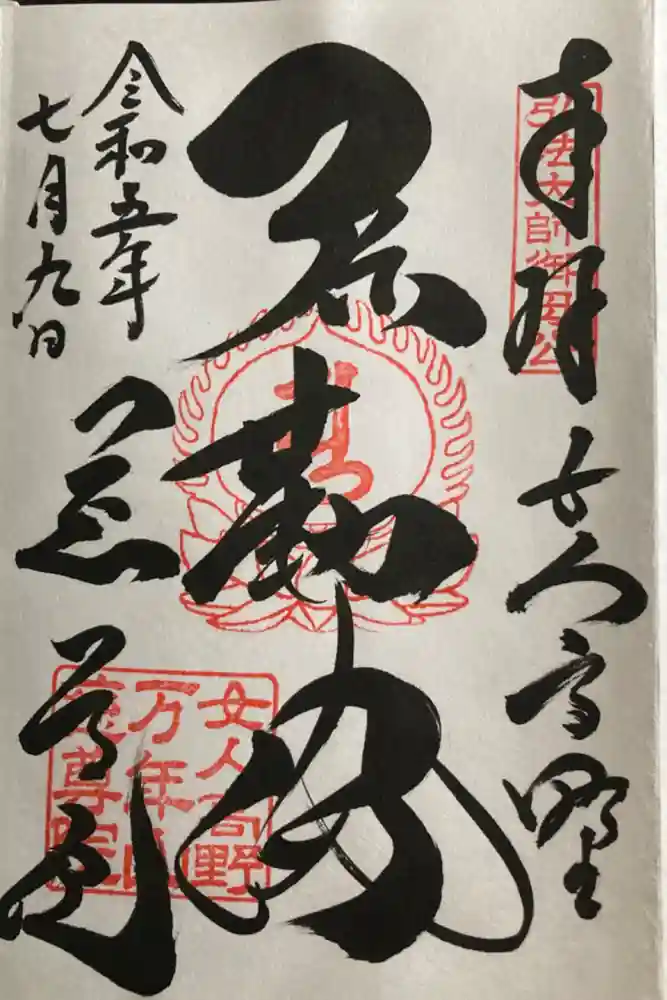 奉拝 女人高野
弘法大師御母公
弥勒佛
令和五年
七月九日
慈尊院
女人高野
万年山
慈尊院